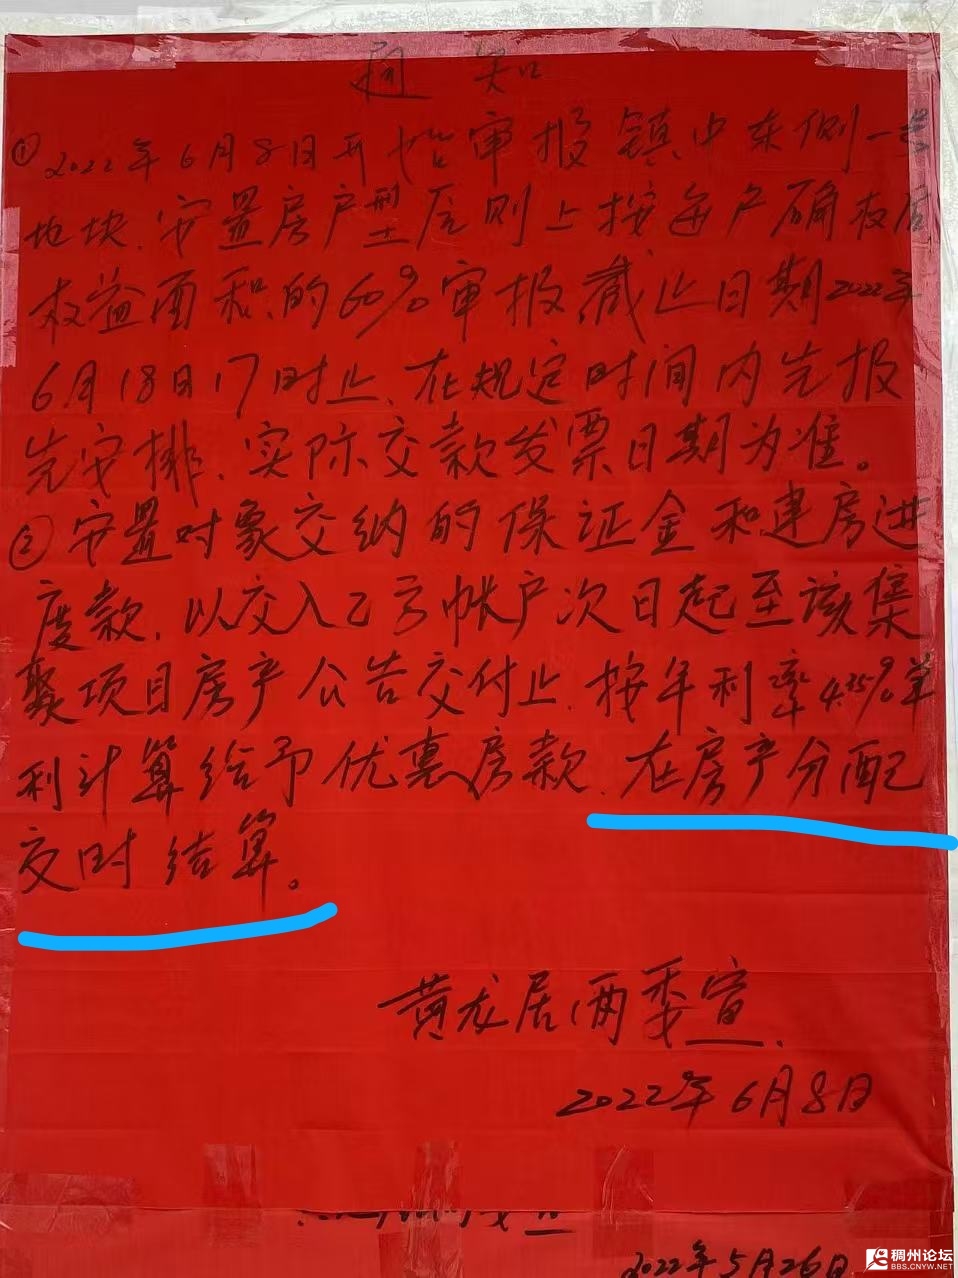 通知
①2022年6月8日开始审报镇中东侧一号
地块.安置房户型原则上按每户确权居
权益面积的60%审报,截止日期2022年
6月18日17时止.在规定时间内先报
先安排.实际交款发票日期为准。
②安置对象交纳的保证金和建房进
度款.以交入乙方帐户次日起至该集
聚项目房产公告交付止.按年利率4.35%单
利计算给予优惠房款.在房产分配
交时结算。
黄龙居两委宣.
2022年6月8日
2022年5月26日
稠州论坛
BBS.CNYW.NET